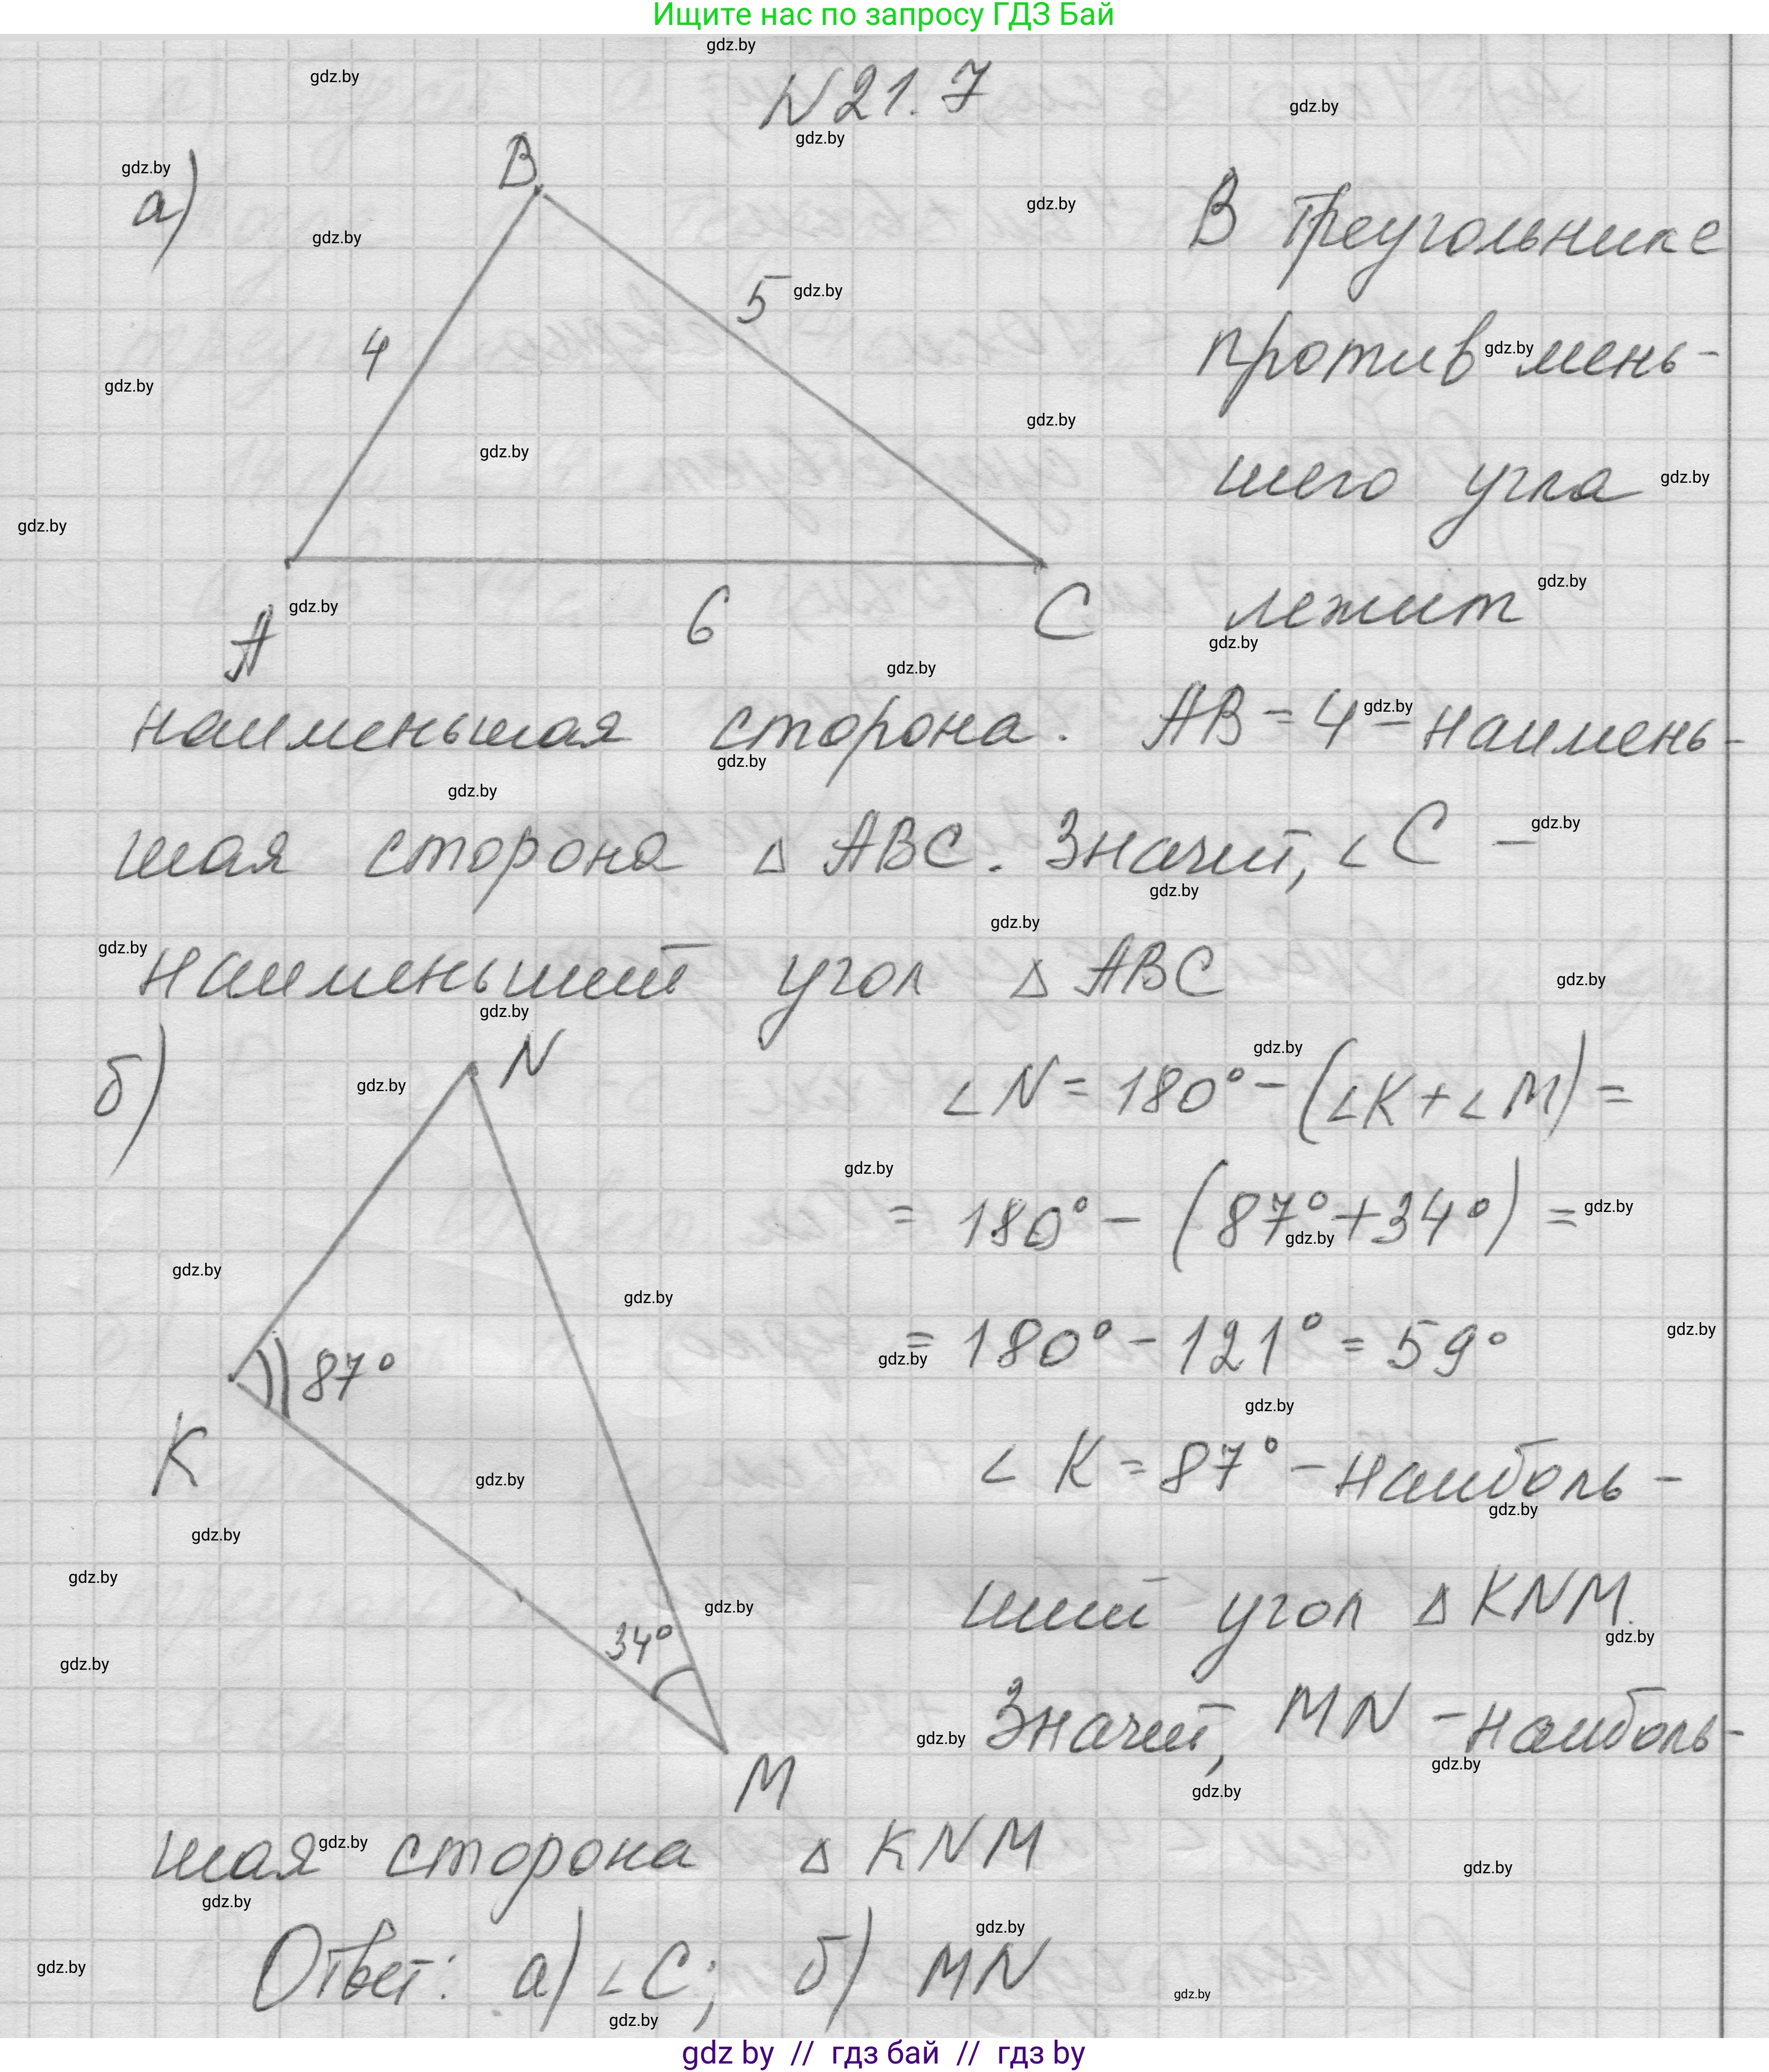 Ищите нас по запросу ГДЗ Бай
N 21.7
а)
B
4
5
A
6
C
В треугольнике
против мень-
шего угла
лежит
наименьшая сторона. AB = 4 - наимень-
шая сторона △ ABC. Значит, ∠C -
наименьший угол △ ABC
б)
N
87°
K
34°
M
∠N = 180° - (∠K + ∠M) =
= 180° - (87° + 34°) =
= 180° - 121° = 59°
∠K = 87° - наиболь-
ший угол △ KNM.
Значит, MN - наиболь-
шая сторона △ KNM
Ответ: а) ∠C; б) MN
gdz by // гдз бай // гдз by